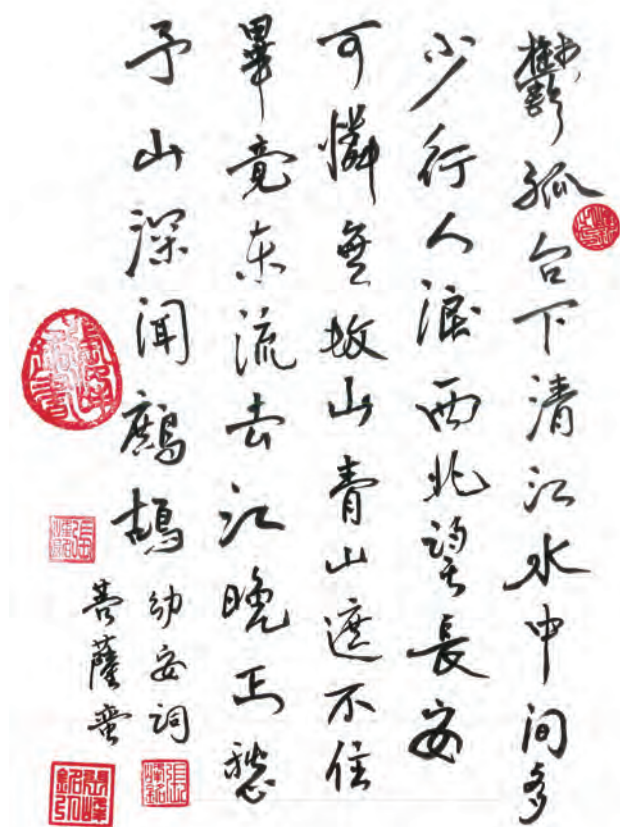 鬱孤台下清江水中间多
少行人淚西北望長安
可憐無數山青山遮不住
畢竟东流去江晚正愁
予山深闻鷓鴣
幼安詞
菩薩蛮